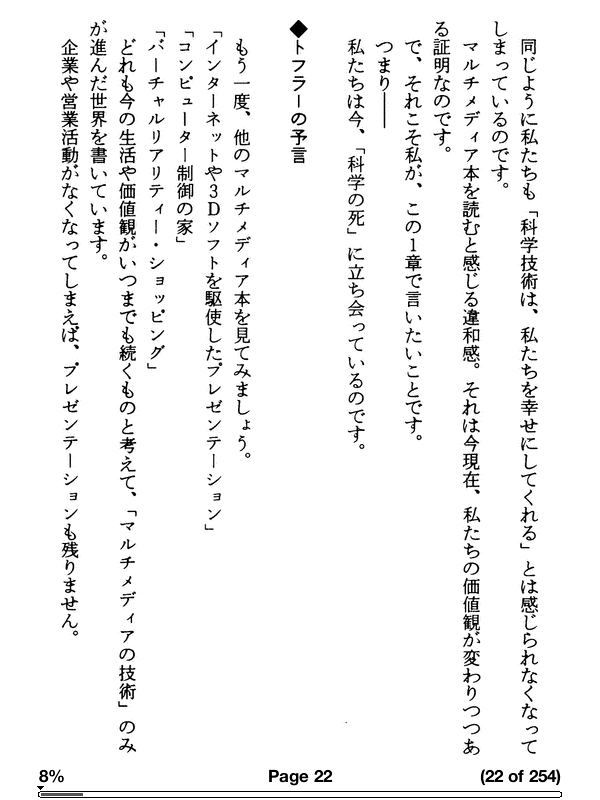 同じように私たちも「科学技術は、私たちを幸せにしてくれる」とは感じられなくなって
しまっているのです。
マルチメディア本を読むと感じる違和感。それは今現在、私たちの価値観が変わりつつあ
る証明なのです。
で、それこそ私が、この1章で言いたいことです。
つまり——
私たちは今、「科学の死」に立ち会っているのです。
◆トフラーの予言
もう一度、他のマルチメディア本を見てみましょう。
「インターネットや3Dソフトを駆使したプレゼンテーション」
「コンピューター制御の家」
「バーチャルリアリティー・ショッピング」
どれも今の生活や価値観がいつまでも続くものと考えて、「マルチメディアの技術」のみ
が進んだ世界を書いています。
企業や営業活動がなくなってしまえば、プレゼンテーションも残りません。
8%
Page 22
(22 of 254)